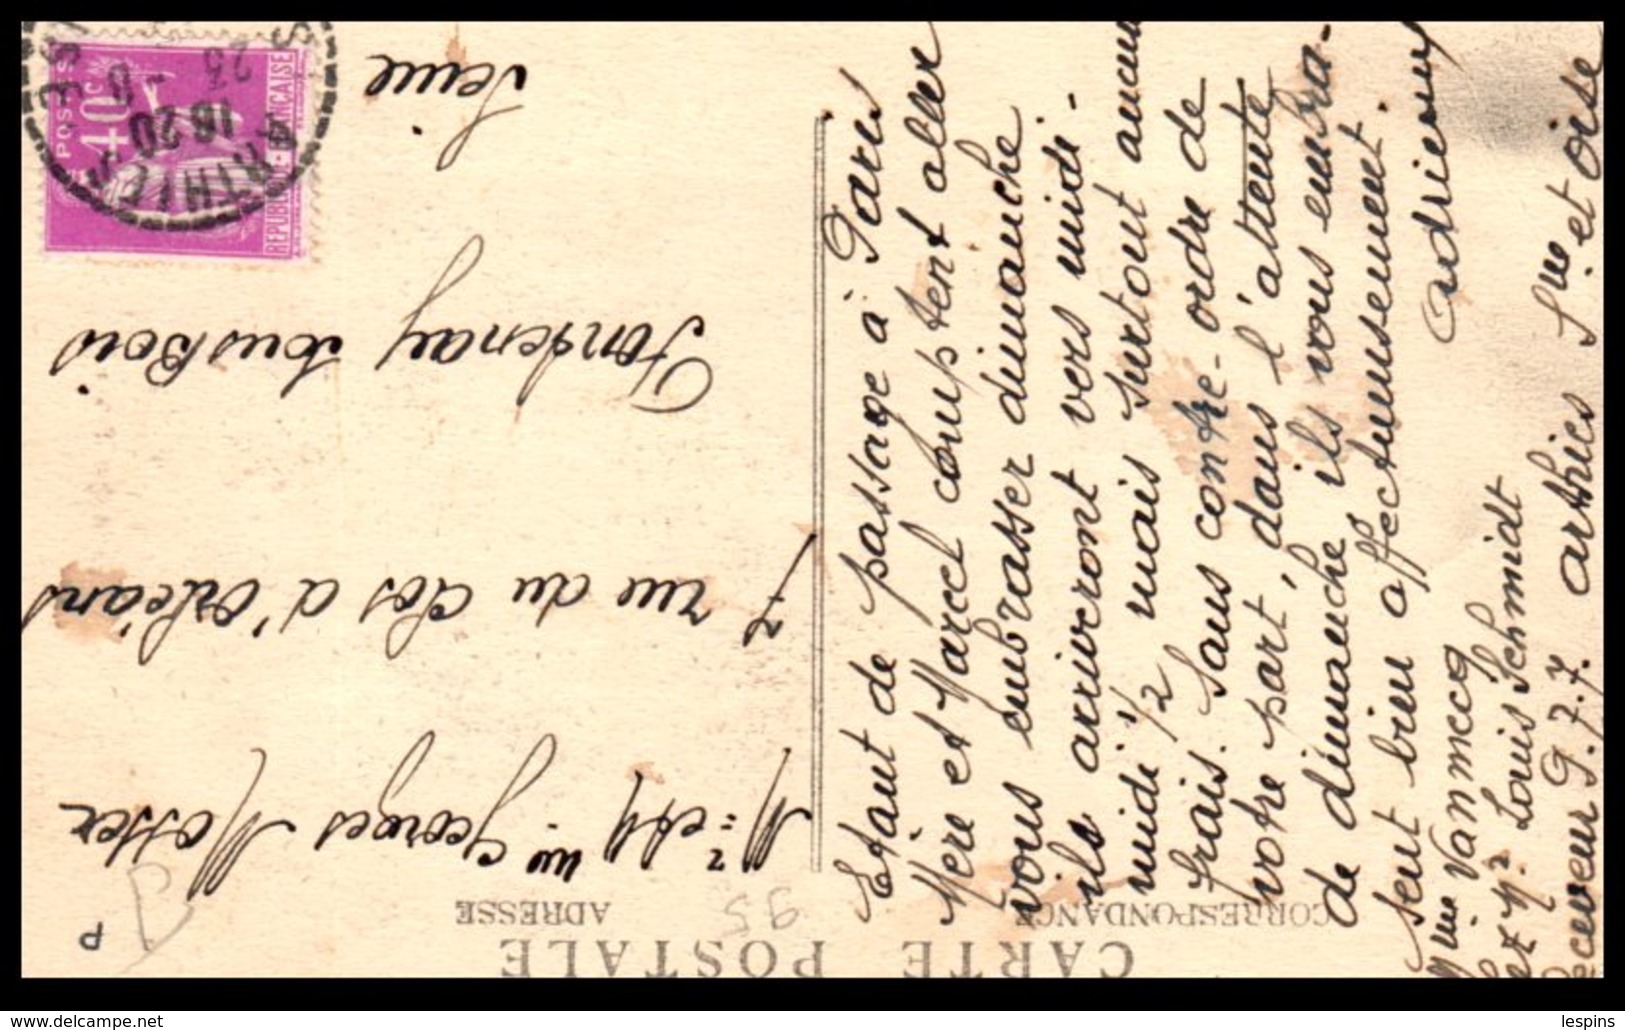 CARTE POSTALE
CORRESPONDANCE
ADRESSE
P
95
Etant de passage à Paris
Mère et Marcel comptent aller
vous embrasser dimanche
ils arriveront vers midi-
midi 1/2, mais surtout aucun
frais. Sans contre-ordre de
votre part, dans l'attente
de dimanche ils vous embra-
sent bien affectueusement.
Adrienne
Mme Vanmecq
et Mr Louis Schmidt
Receveur P.T.T. Arthies Sne et Oise
Mr et Mme Georges Mosser
7 rue du Clos d'Orléans
Fontenay sous Bois
Seine
POSTES
40c
REPUBLIQUE FRANÇAISE
ARTHIES
18 20
23